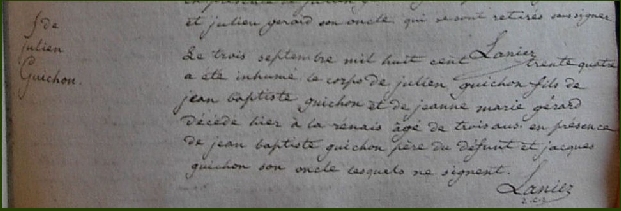 et julien gerard son oncle qui se sont retirés sans signer
Lanier
S. de
julien
Guichon.
Le trois septembre mil huit cent trente quatre
a été inhumé le corps de julien guichon fils de
jean baptiste guichon et de jeanne marie gérard
décédé hier à la renais âgé de trois ans en présence
de jean baptiste guichon père du défunt et jacques
guichon son oncle lesquels ne signent.
Lanier